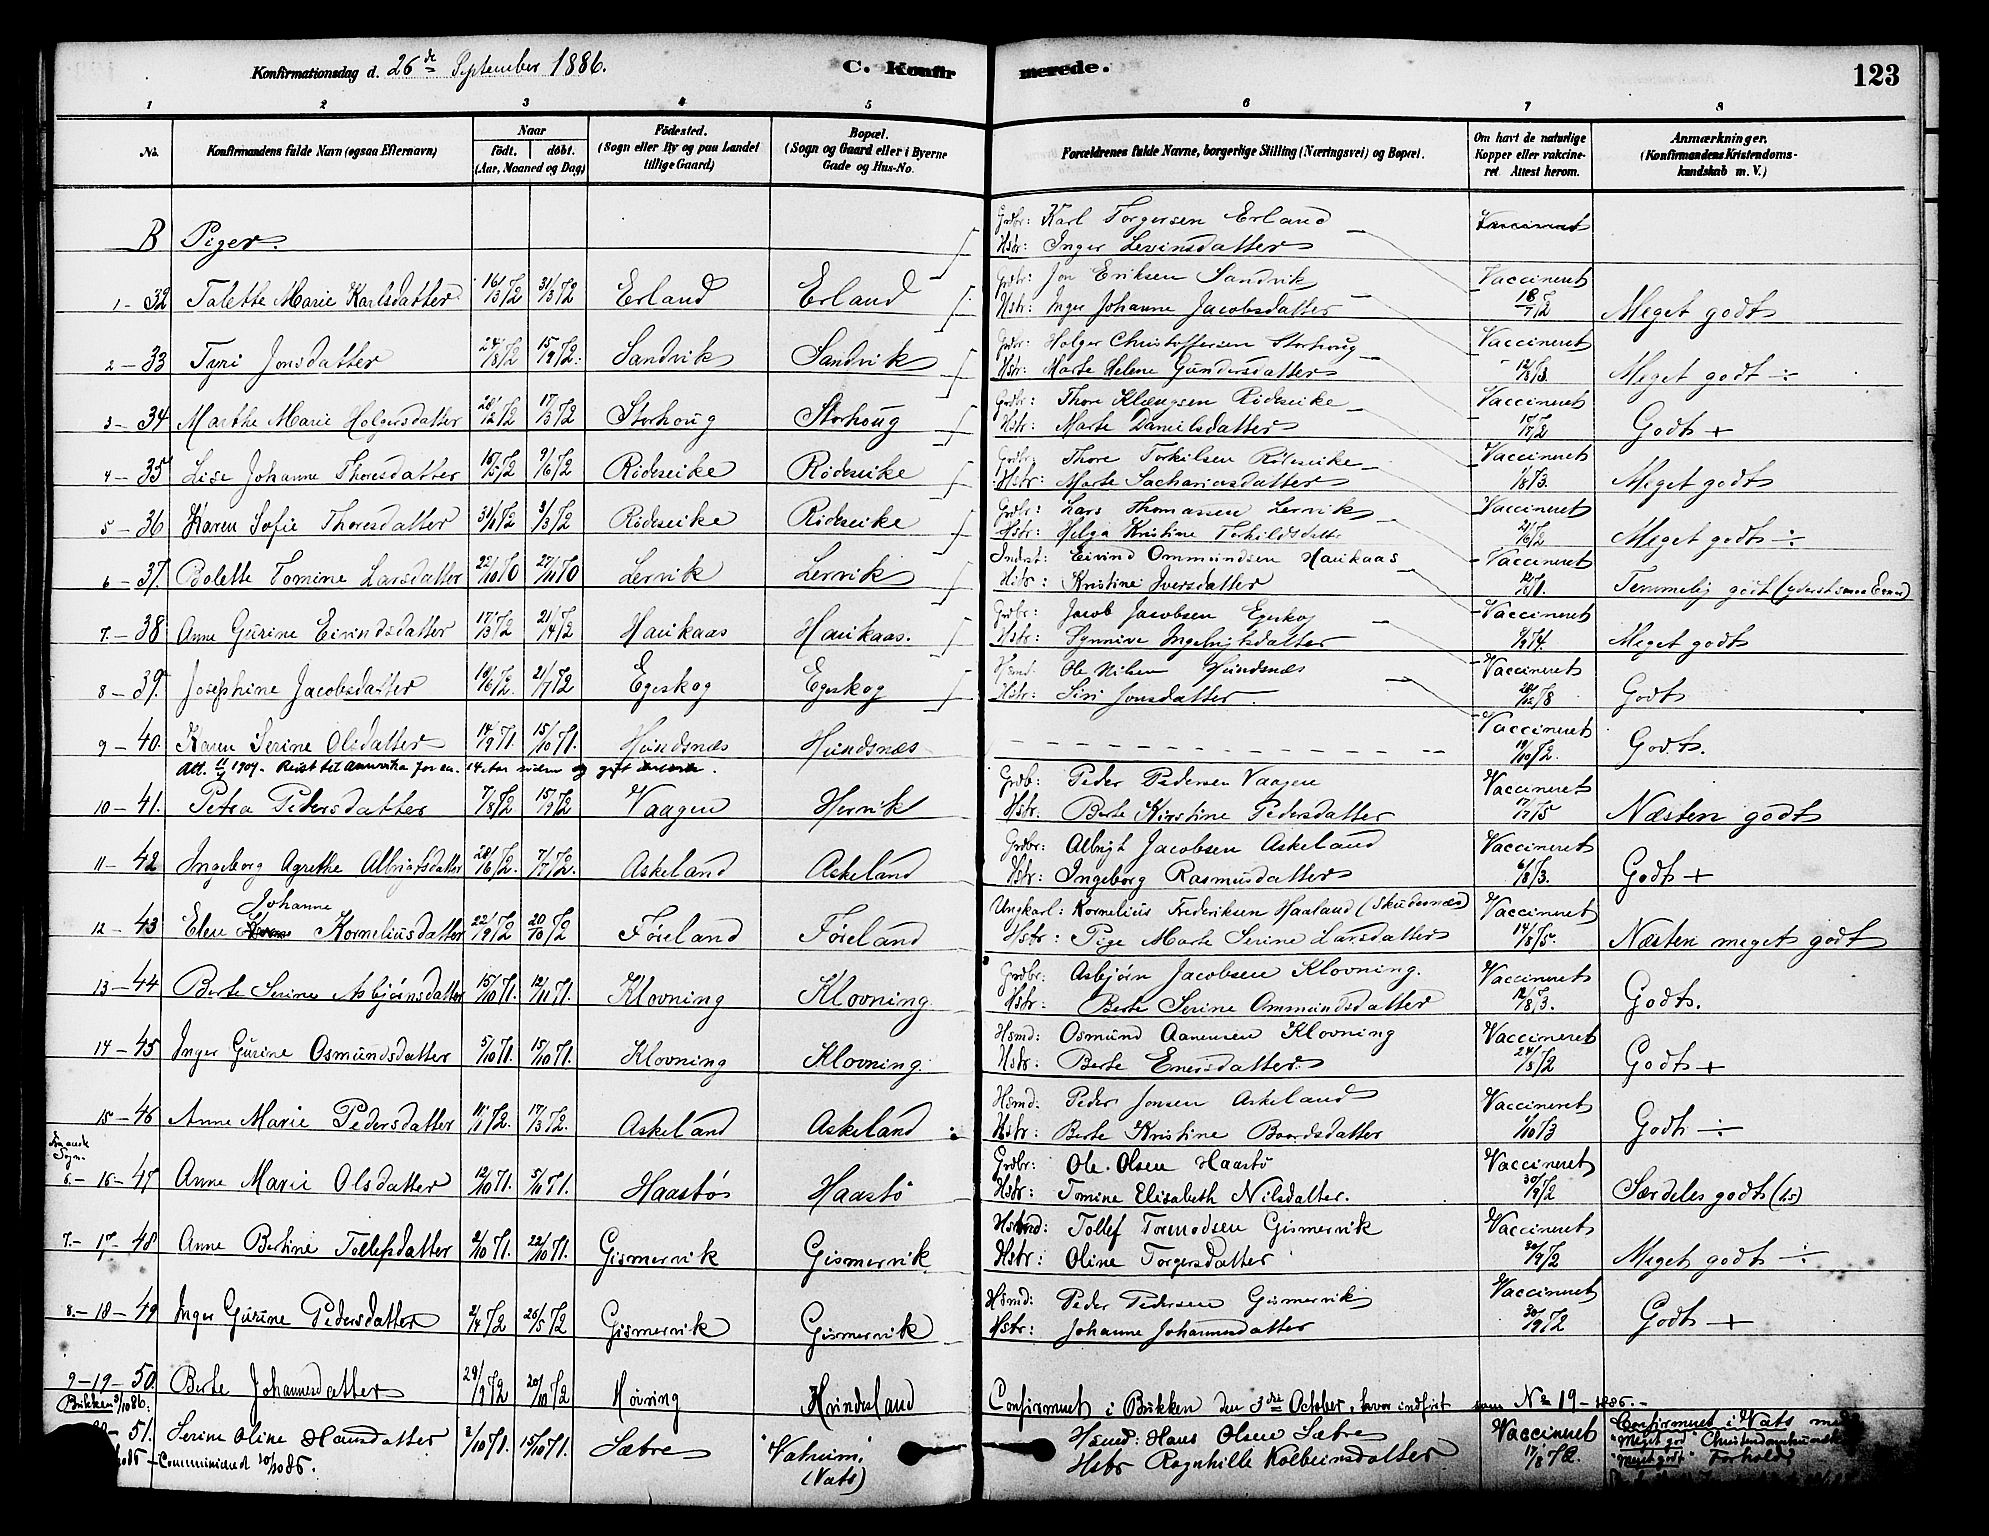 Konfirmationsdag d. 26de September 1886. C. Konfirmerede. 123
1 2 3 4 5 6 7 8
No. Konfirmandens fulde Navn (ogsaa Efternavn) Naar født. døbt. (Aar, Maaned og Dag) Fødested. (Sogn eller By og paa Landet tillige Gaard) Bopæl. (Sogn og Gaard eller i Byerne Gade og Hus-No. Forældrenes fulde Navne, borgerlige Stilling (Næringsvei) og Bopæl. Om havt de naturlige Kopper eller vakcineret Attest herom. Anmærkninger. (Konfirmandens Kristendomskundskab m. V.)
B Piger.
Grdbr: Karl Torgersen Erland Vaccineret
Hstr: Inger Levinsdatter
1-32 Talette Marie Karlsdatter 16/3 72 31/3 72 Erland Erland
Grdbr: Jon Eriksen Sandvik Vaccineret
Hstr: Inger Johanne Jacobsdatter 18/7 72 Meget godt
2-33 Tyri Jonsdatter 24/8 72 15/9 72. Sandvik Sandvik
Grdbr: Holger Christoffersen Storhoug Vaccineret
Hstr: Marte Helene Gundersdatter 12/8 73. Meget godt ÷
3-34 Marthe Marie Holgersdatter 17/3 72 Storhoug Storhoug
Grdbr: Thore Klængsen Rödseike Vaccineret
Hstr: Marte Danielsdatter 17/7 72 Godt +
4-35 Lise Johanne Thoresdatter 9/6 72 Rödseike Rödseike
Grdbr: Thore Torkilsen Rödseike Vaccineret
Hstr: Marte Sachariasdatter Meget godt
5-36 Karen Sofie Thoresdatter 3/3 72 Rödseike Rödseike
Grdbr: Lars Thomassen Lervik Vaccineret
Hstr: Helga Kristine Torkildsdatter 21/6 72 Meget godt ÷
6-37. Bolette Tomine Larsdatter 22/10 70 27/11 70 Lervik Lervik
Indst: Eivind Ommundsen Haukaas Vaccineret
Hstr: Kristine Iversdatter Temmelig godt
7-38 Anne Gurine Eivindsdatter 17/3 72 21/4 72 Haukaas Haukaas.
Grdbr: Jacob Jacobsen Egeskog Vaccineret
Hstr: Synnive Ingebrigtsdatter Meget godt
8-39. Josephine Jacobsdatter 21/7 72 Egeskog Egeskog
Hsmd: Ole Nilsen Hundsnæs Vaccineret
Hstr: Siri Jonsdatter. Godt
9-40. Karen Serine Olsdatter 14/9 71. 15/10 71. Hundsnæs Hundsnæs
Vaccineret 19/10 72. Godt.
Att. 1907. Reist til Amerika for ca. 14 Aar siden og gift
10-41. Petra Pedersdatter 7/8 72 15/9 72 Vaagen Hervik
Grdb: Peder Pedersen Vaagen Vaccineret
Hstr: Berte Kirstine Pedersdatter 17/7 75 Næsten godt
11-42 Ingeborg Agrethe Albrigtsdatter 28/6 72. 7/7 72. Askeland Askeland
Grdbr: Albrigt Jacobsen Askeland Vaccineret
Hstr: Ingeborg Rasmusdatter 6/8 73. Godt +
12-43 Elen Johanne Korneliusdatter 22/9 72 20/10 72 Føreland Føreland
Ungkarl: Kornelius Frederiksen Haaland (Skudesnæs) Vaccineret
Hstr: Pige Marte Serine Larsdatter 14/8 75. Næsten meget godt
13-44 Berte Serine Asbjørnsdatter 15/10 71. 12/11 71. Klovning Klovning.
Grdbr: Asbjørn Jacobsen Klovning. Vaccineret
Hstr: Berte Serine Ommundsdatter 12/8 73. Godt.
14-45 Inger Gurine Osmundsdatter 5/10 71. 15/10 71. Klovning Klovning.
Hsmd: Osmund Aanensen Klovning Vaccineret
Hstr: Berte Enersdatter. 24/8 72 Godt +
15-46 Anne Marie Pedersdatter 17/3 72. Askeland Askeland
Hsmd: Peder Jonsen Askeland Vaccineret
Hstr: Berte Kristine Baardsdatter 1/10 73 Godt ÷
16-47 Anne Marie Olsdatter 12/10 71. 5/10 71. Haastø Haastø
Grdbr: Ole Olsen Haastö Vaccineret
Hstr: Tomine Elisabeth Nilsdatter. 30/9 72 Særdeles godt
7.-17-48 Anne Bertine Tollefsdatter 2/10 71. 22/10 71. Gismervik Gismervik.
Hsmd: Tollef Tormodsen Gismervik Vaccineret
Hstr: Oline Torgersdatter 30/9 72 Meget godt ÷
8.-18-49 Inger Gurine Pedersdatter 2/4 72 26/5 72 Gismervik Gismervik
Hsmd: Peder Pedersen Gismervik Vaccineret
Hstr: Johanne Johannesdatter 30/9 72 Godt +
9-19-50. Berte Johannesdatter 29/9 72 20/10 72 Møvring Hvindesland
Bukken 3/10 86. Confirmeret i Bukken den 3die October, hvor indført som No 19 - 1886. -
51. Serine Oline Hansdatter 2/10 71. 15/10 71. Sæbre Vatnum. (Vats)
Hsmd: Hans Olsen Sæbre Vaccineret Confirmeret i Vats med
Hstr Ragnhille Kolbeinsdatter 17/8 72. "Meget god" "Meget godt" Forhold
Communiceret 20/10 86.